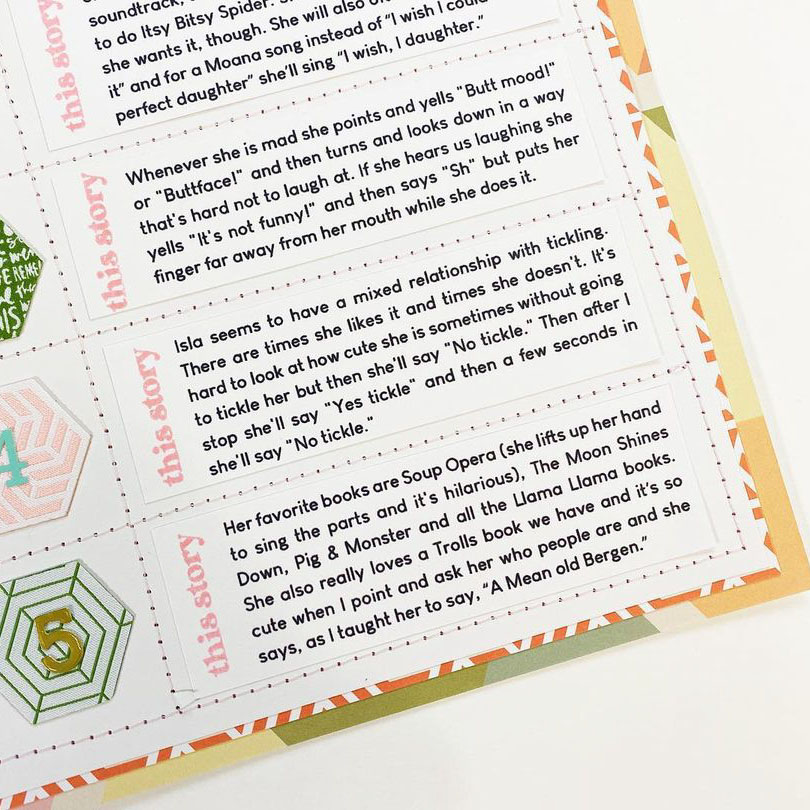 soundtrack,
to do Itsy Bitsy Spider.
she wants it, though. She will also
it" and for a Moana song instead of "I wish I could
perfect daughter" she'll sing "I wish, I daughter."
this story
Whenever she is mad she points and yells "Butt mood!"
or "Buttface!" and then turns and looks down in a way
that's hard not to laugh at. If she hears us laughing she
yells "It's not funny!" and then says "Sh" but puts her
finger far away from her mouth while she does it.
this story
Isla seems to have a mixed relationship with tickling.
There are times she likes it and times she doesn't. It's
hard to look at how cute she is sometimes without going
to tickle her but then she'll say "No tickle." Then after I
stop she'll say "Yes tickle" and then a few seconds in
she'll say "No tickle."
this story
4
Her favorite books are Soup Opera (she lifts up her hand
to sing the parts and it's hilarious), The Moon Shines
Down, Pig & Monster and all the Llama Llama books.
She also really loves a Trolls book we have and it's so
cute when I point and ask her who people are and she
says, as I taught her to say, "A Mean old Bergen."
this story
5